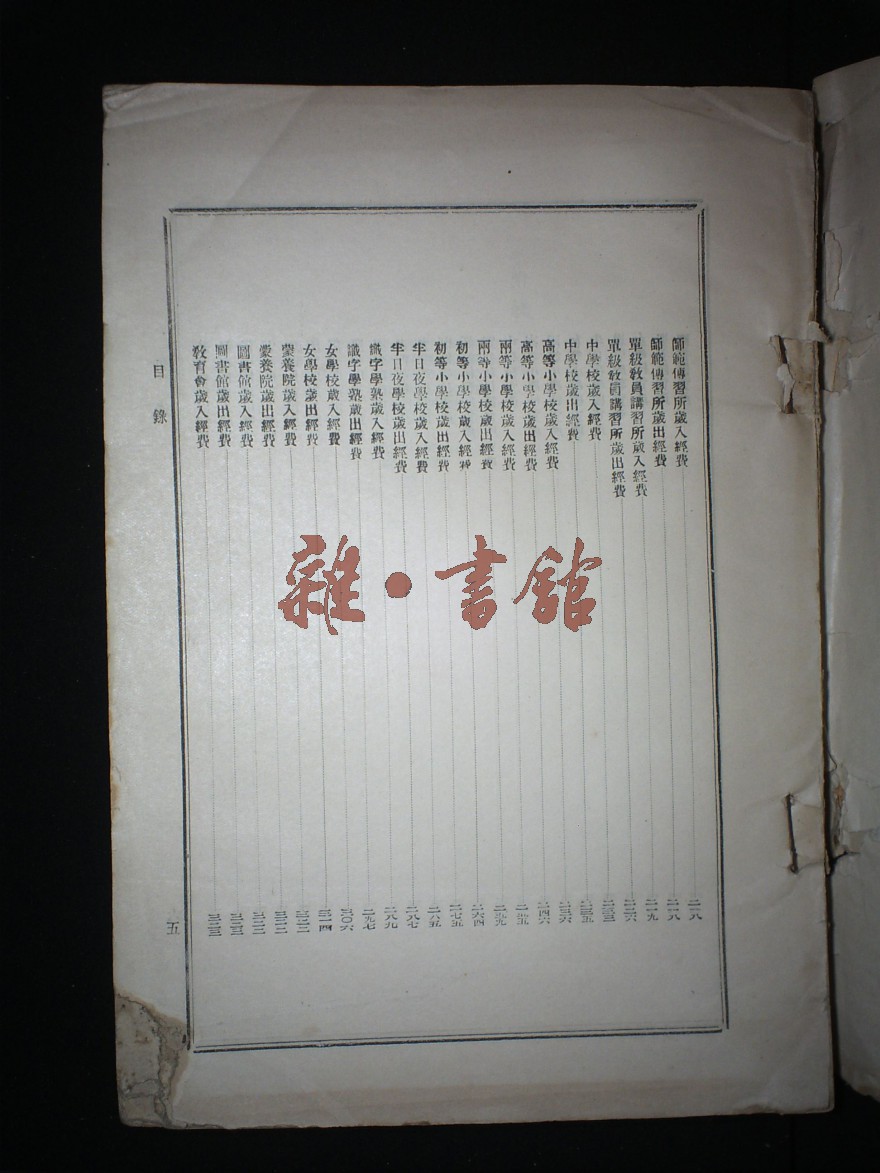 師範傳習所歲入經費 二一八
師範傳習所歲出經費 二一八
單級教員講習所歲入經費 二一九
單級教員講習所歲出經費
中學校歲入經費
中學校歲出經費
高等小學校歲入經費 二三六
高等小學校歲出經費 二四六
兩等小學校歲入經費
兩等小學校歲出經費
初等小學校歲入經費 二六四
初等小學校歲出經費 二七五
半日夜學校歲入經費 二八五
半日夜學校歲出經費 二八七
識字學塾歲入經費 二八九
識字學塾歲出經費 二九七
女學校歲入經費 三〇六
女學校歲出經費 三一四
蒙養院歲入經費
蒙養院歲出經費
圖書館歲入經費
圖書館歲出經費
教育會歲入經費
目錄
五
雜·書館